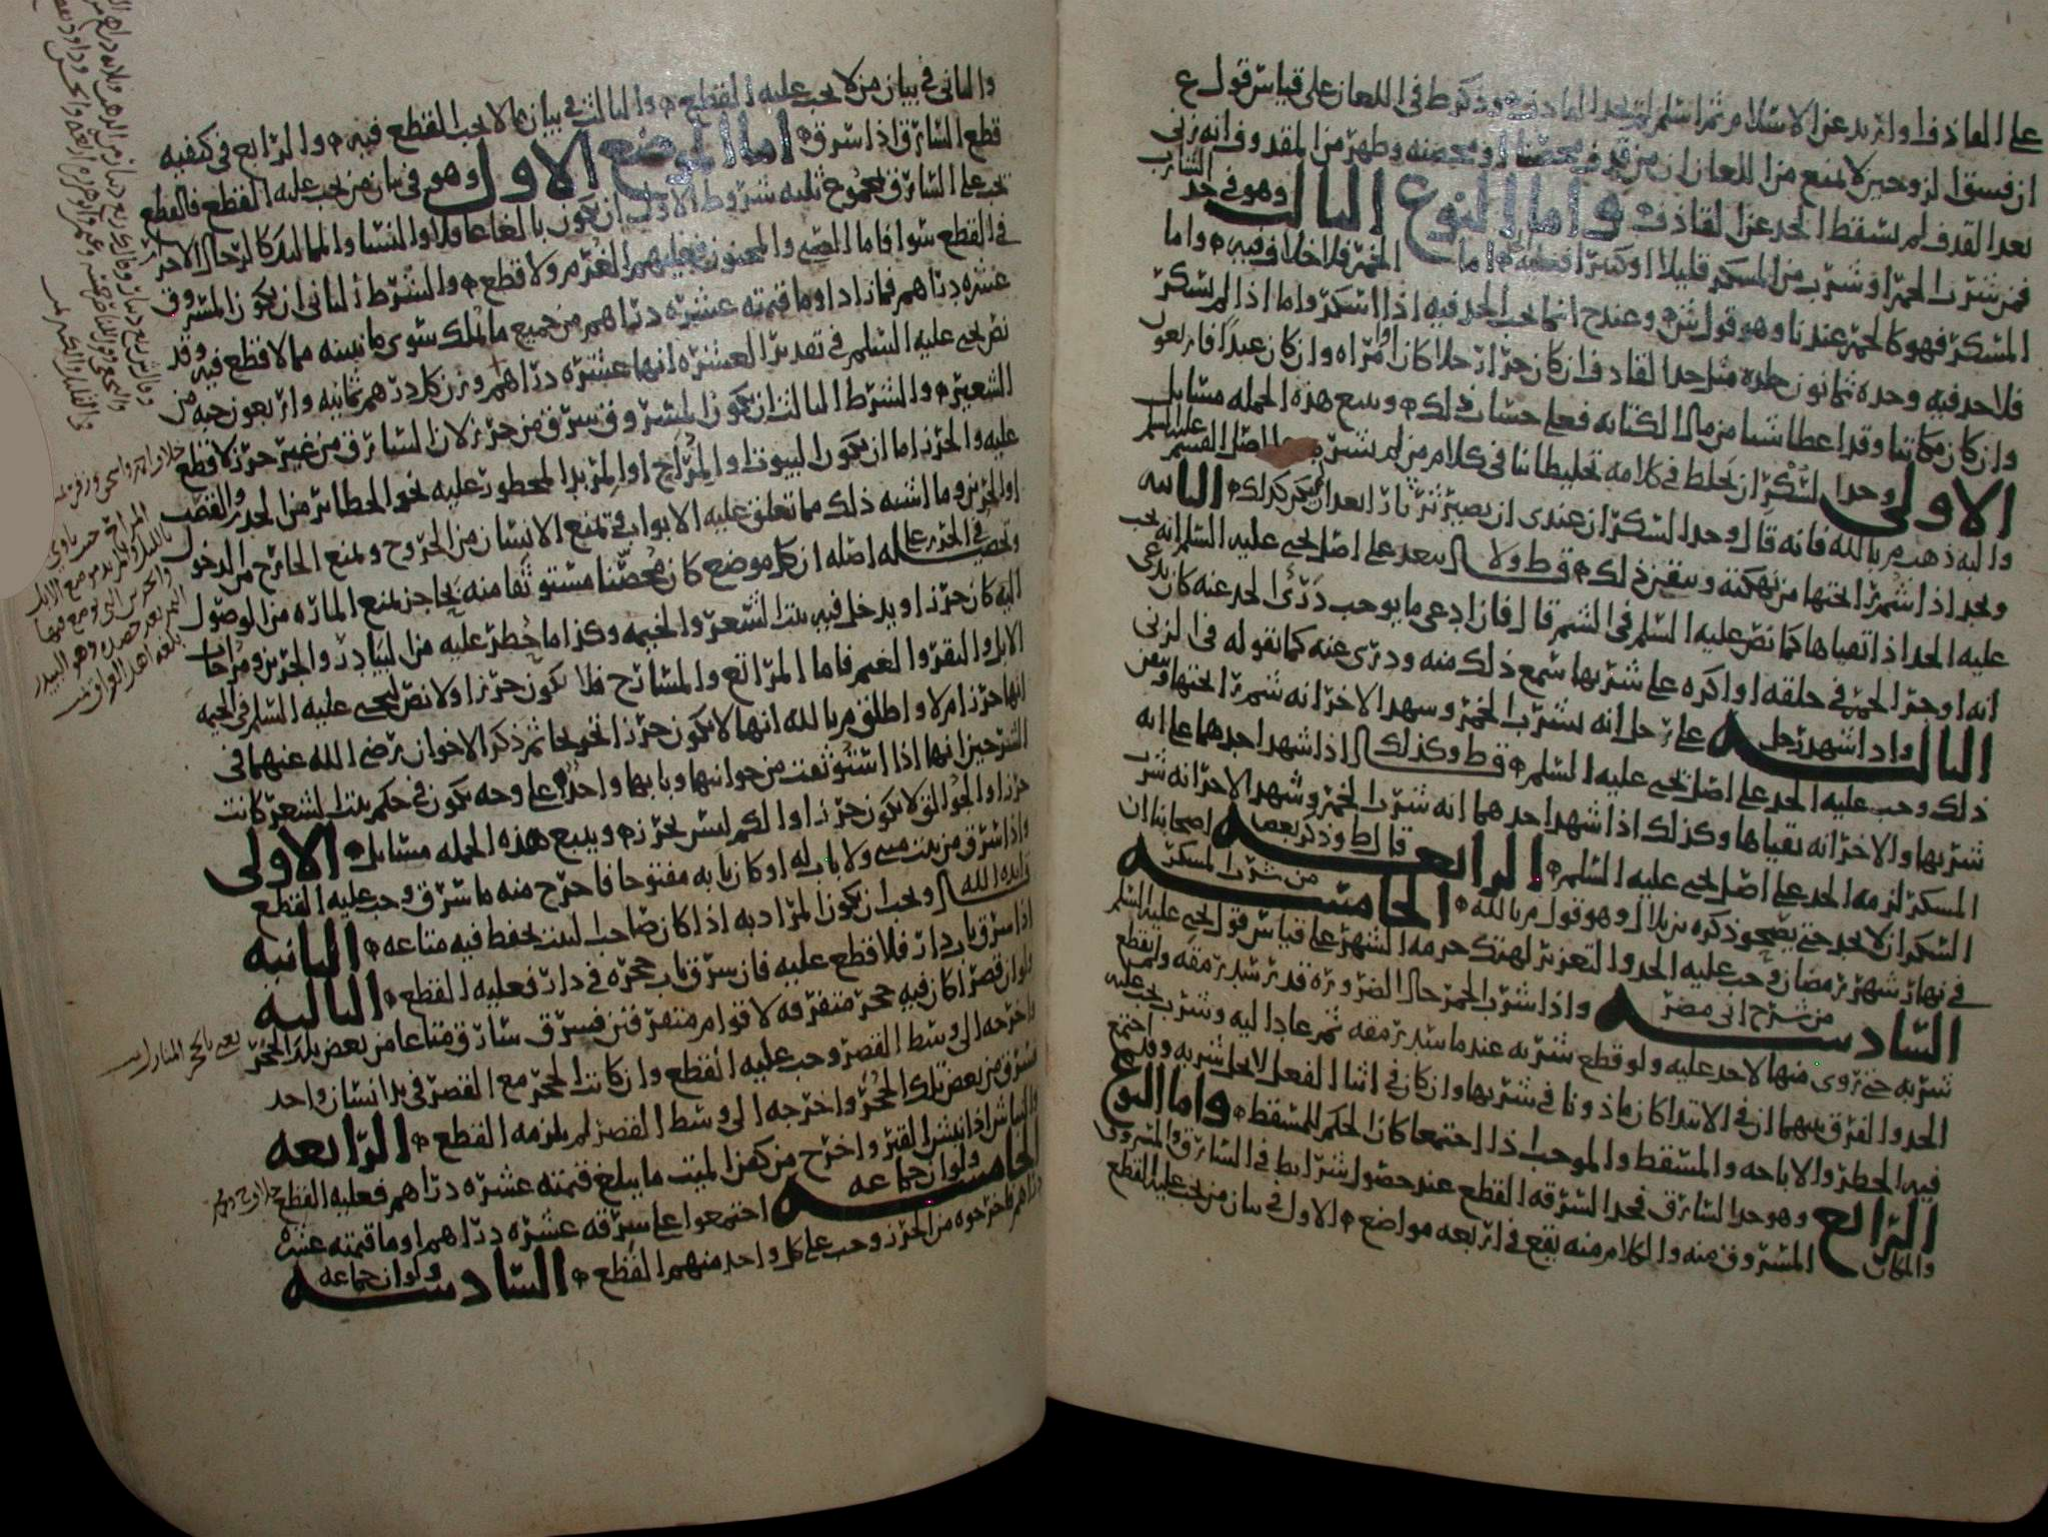 على القاذف او ارتد عن الاسلام ثم اسلم لم يحد القاذف وذكر ط في اللعان على قياس قول ع
ان فسق الزوجين لا يمنع من اللعان ان من قذف محصنا او محصنه وطهر من المقذوف انه زنى
بعد القذف لم يسقط الحد عن القاذف واما النوع الثالث وهو في حد الشارب
فمن شرب الخمر او شرب من المسكر قليلا او كثيرا اما الخمر فلا خلاف فيه واما
المسكر فهو كالخمر عندنا وهو قول ش وعند ح انما يجب الحد فيه اذا اسكر واما اذا لم يسكر
فلا حد فيه وحده ثمانون جلده مثل حد القاذف ان كان حرا رجلا كان او امراه وان كان عبدا فاربعون
وان كان مكاتبا وقد اعطا شيا من مال الكتابه فعلى حساب ذلك ويتبع هذه الجمله مسايل
الاولى وحد السكر ان يخلط في كلامه تخليطا في كلام من لم يشربه على اصل القسم عليه السلم
واليه ذهب م بالله فانه قال وحد السكران عندي ان يصير ثرثارا بعد ان لم يكن كذلك الثانيه
ويحد اذا شم را الخمر من نكهته وتيقن ذلك قط ولا يبعد على اصل يحيى عليه السلم انه يجب
عليه الحد اذا تقياها كما نص عليه السلم في الشم قال فان ادعى ما يوجب درى الحد عنه كان يدعي
انه اوجر الخمر في حلقه او اكره على شربها سمع ذلك منه ودرى عنه كما نقوله في الزنى
الثالثه واذا شهد رجل على رجل انه شرب الخمر وشهد الاخر انه شم را الخمر وتيقن
ذلك وجب عليه الحد على اصل يحيى عليه السلم قط وكذلك اذا شهد احدهما على انه
شربها والاخر انه تقياها وكذلك اذا شهد احدهما انه شرب الخمر وشهد الاخر انه شرب
المسكر لزمه الحد على اصل يحيى عليه السلم الرابعه قال ط وذكر بعض اصحابنا ان
السكران لا يحد حتى يصحو ذكره بن بلال وهو قول م بالله الخامسه من شرب المسكر
في نهار شهر رمضان وجب عليه الحد والتعزير لهتك حرمه الشهر على قياس قول يحيى عليه السلم
السادسه من شرح ابي مضر واذا شرب الخمر حال الضروره قدر سد رمقه ولم يقطع
شربه حتى روى منها لا حد عليه ولو قطع شربه عند ما سد رمقه ثم عاد اليه وشرب يجب عليه
الحد والفرق بينهما ان في الابتدا كان ماذونا في شربها وان كان في اثنا الفعل لا يحل شربه وقد اجتمع
فيه الحظر والاباحه والمسقط والموجب اذا اجتمعا كان الحكم للمسقط واما النوع
الرابع وهو حد السارق فحد السرقه القطع عند حصول شرايط في السارق والمسروق
والمكان المسروق منه والكلام منه يقع في اربعه مواضع الاول في بيان من يجب عليه القطع
والثاني في بيان من لا يجب عليه القطع والثالث في بيان ما لا يجب القطع فيه والرابع في كيفيه
قطع السارق اذا سرق اما الموضع الاول وهو في بيان من يجب عليه القطع فالقطع
يجب على السارق بمجموع ثلثه شروط الاول ان يكون بالغا عاقلا والنسا والمماليك كالرجال الاحرار
في القطع سوا فاما الصبي والمجنون فعليهم الغرم ولا قطع والشرط الثاني ان يكون المسروق
عشره دراهم فما زاد او ما قيمته عشره دراهم من جميع ما يملك سوى ما نبينه مما لا قطع فيه وقد
نص يحيى عليه السلم في تقدير العشره انها عشره دراهم وزن كل درهم ثمانيه واربعون حبه من
الشعير والشرط الثالث ان يكون المسروق سرق من حرز لان السارق من غير حرز لا قطع
عليه والحرز اما ان يكون البيوت او المراح او المربد المحظور عليه نحو الحظاير من الجدر والقصب
او الجرين وما اشبه ذلك مما تعلق عليه الابواب في تمنع الانسان من الخروج وتمنع الخارج من الدخول
وتحصيل في الحرز على اصله ان كل موضع كان محصنا مستوثقا منه بحاجز يمنع الماره من الوصول
اليه كان حرزا ويدخل فيه بيت الشعر والخيمه وكذا ما حظر عليه من البيادر والجرين ومراحات
الابل والبقر والغنم فاما المراتع والمسارح فلا يكون حرزا ولا نص ليحيى عليه السلم في الخيمه
انها حرز ام لا واطلق م بالله انها لا يكون حرزا ثم ذكر الاخوان رضي الله عنهما في
الشرحين انها اذا استوثقت من جوانبها وبابها واحد على وجه يكون في حكم بيت الشعر كانت
حرزا والجوالق لا يكون حرزا والكم ليس بحرز ويتبع هذه الجمله مسايل الاولى
واذا سرق من بيت ولا باب له او كان بابه مفتوحا فاخرج منه ما سرق وجب عليه القطع
قال ويجب ان يكون المراد به اذا كان صاحب البيت يحفظ فيه متاعه الثانيه
اذا سرق باب دار فلا قطع عليه فان سرق باب حجره في دار فعليه القطع الثالثه
ولو ان قصرا كان فيه حجر متفرقه لاقوام متفرقين فسرق سارق متاعا من بعض تلك الحجر
واخرجه الى وسط القصر وجب عليه القطع وان كانت الحجر مع القصر في يد انسان واحد
فسرق من بعض تلك الحجر واخرجه الى وسط القصر لم يلزمه القطع الرابعه
والنباش اذا نبش القبر واخرج من كفن الميت ما يبلغ قيمته عشره دراهم فعليه القطع
الخامسه ولو ان جماعه اجتمعوا على سرقه عشره دراهم او ما قيمته عشره
دراهم فاخرجوه من الحرز وجب على كل واحد منهم القطع السادسه ولو ان جماعه
يعني بالحجر المنازل